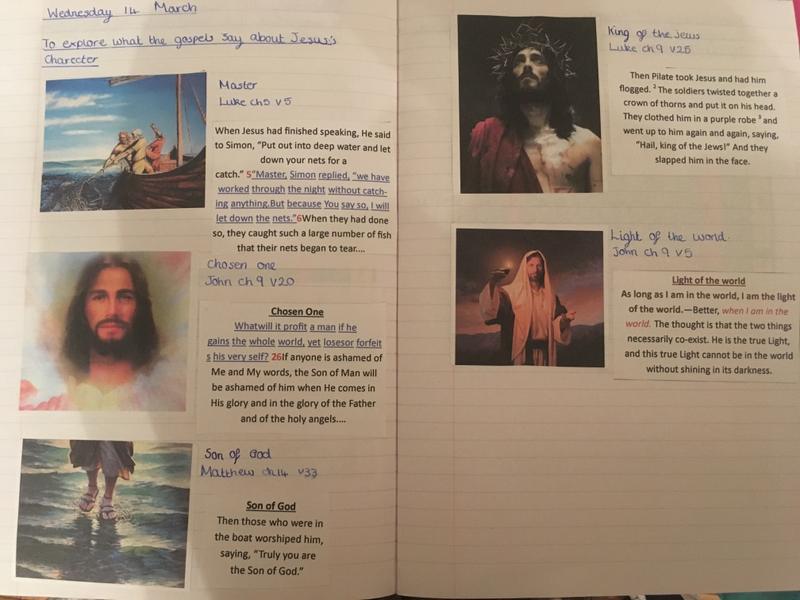 Wednesday 14 March
To explore what the gospels say about Jesus's
Charecter
Master
Luke ch5 v5
When Jesus had finished speaking, He said
to Simon, “Put out into deep water and let
down your nets for a
catch.” 5“Master, Simon replied, “we have
worked through the night without catch-
ing anything.But because You say so, I will
let down the nets.”6When they had done
so, they caught such a large number of fish
that their nets began to tear....
Chosen one
John ch 9 v20
Chosen One
Whatwill it profit a man if he
gains the whole world, yet losesor forfeit
s his very self? 26If anyone is ashamed of
Me and My words, the Son of Man will
be ashamed of him when He comes in
His glory and in the glory of the Father
and of the holy angels....
Son of God
Matthew ch14 v33
Son of God
Then those who were in
the boat worshiped him,
saying, “Truly you are
the Son of God.”
King of the Jews
Luke ch 9 v25
Then Pilate took Jesus and had him
flogged. 2 The soldiers twisted together a
crown of thorns and put it on his head.
They clothed him in a purple robe 3 and
went up to him again and again, saying,
“Hail, king of the Jews!” And they
slapped him in the face.
Light of the world.
John ch 9 v5
Light of the world
As long as I am in the world, I am the light
of the world.—Better, when I am in the
world. The thought is that the two things
necessarily co-exist. He is the true Light,
and this true Light cannot be in the world
without shining in its darkness.